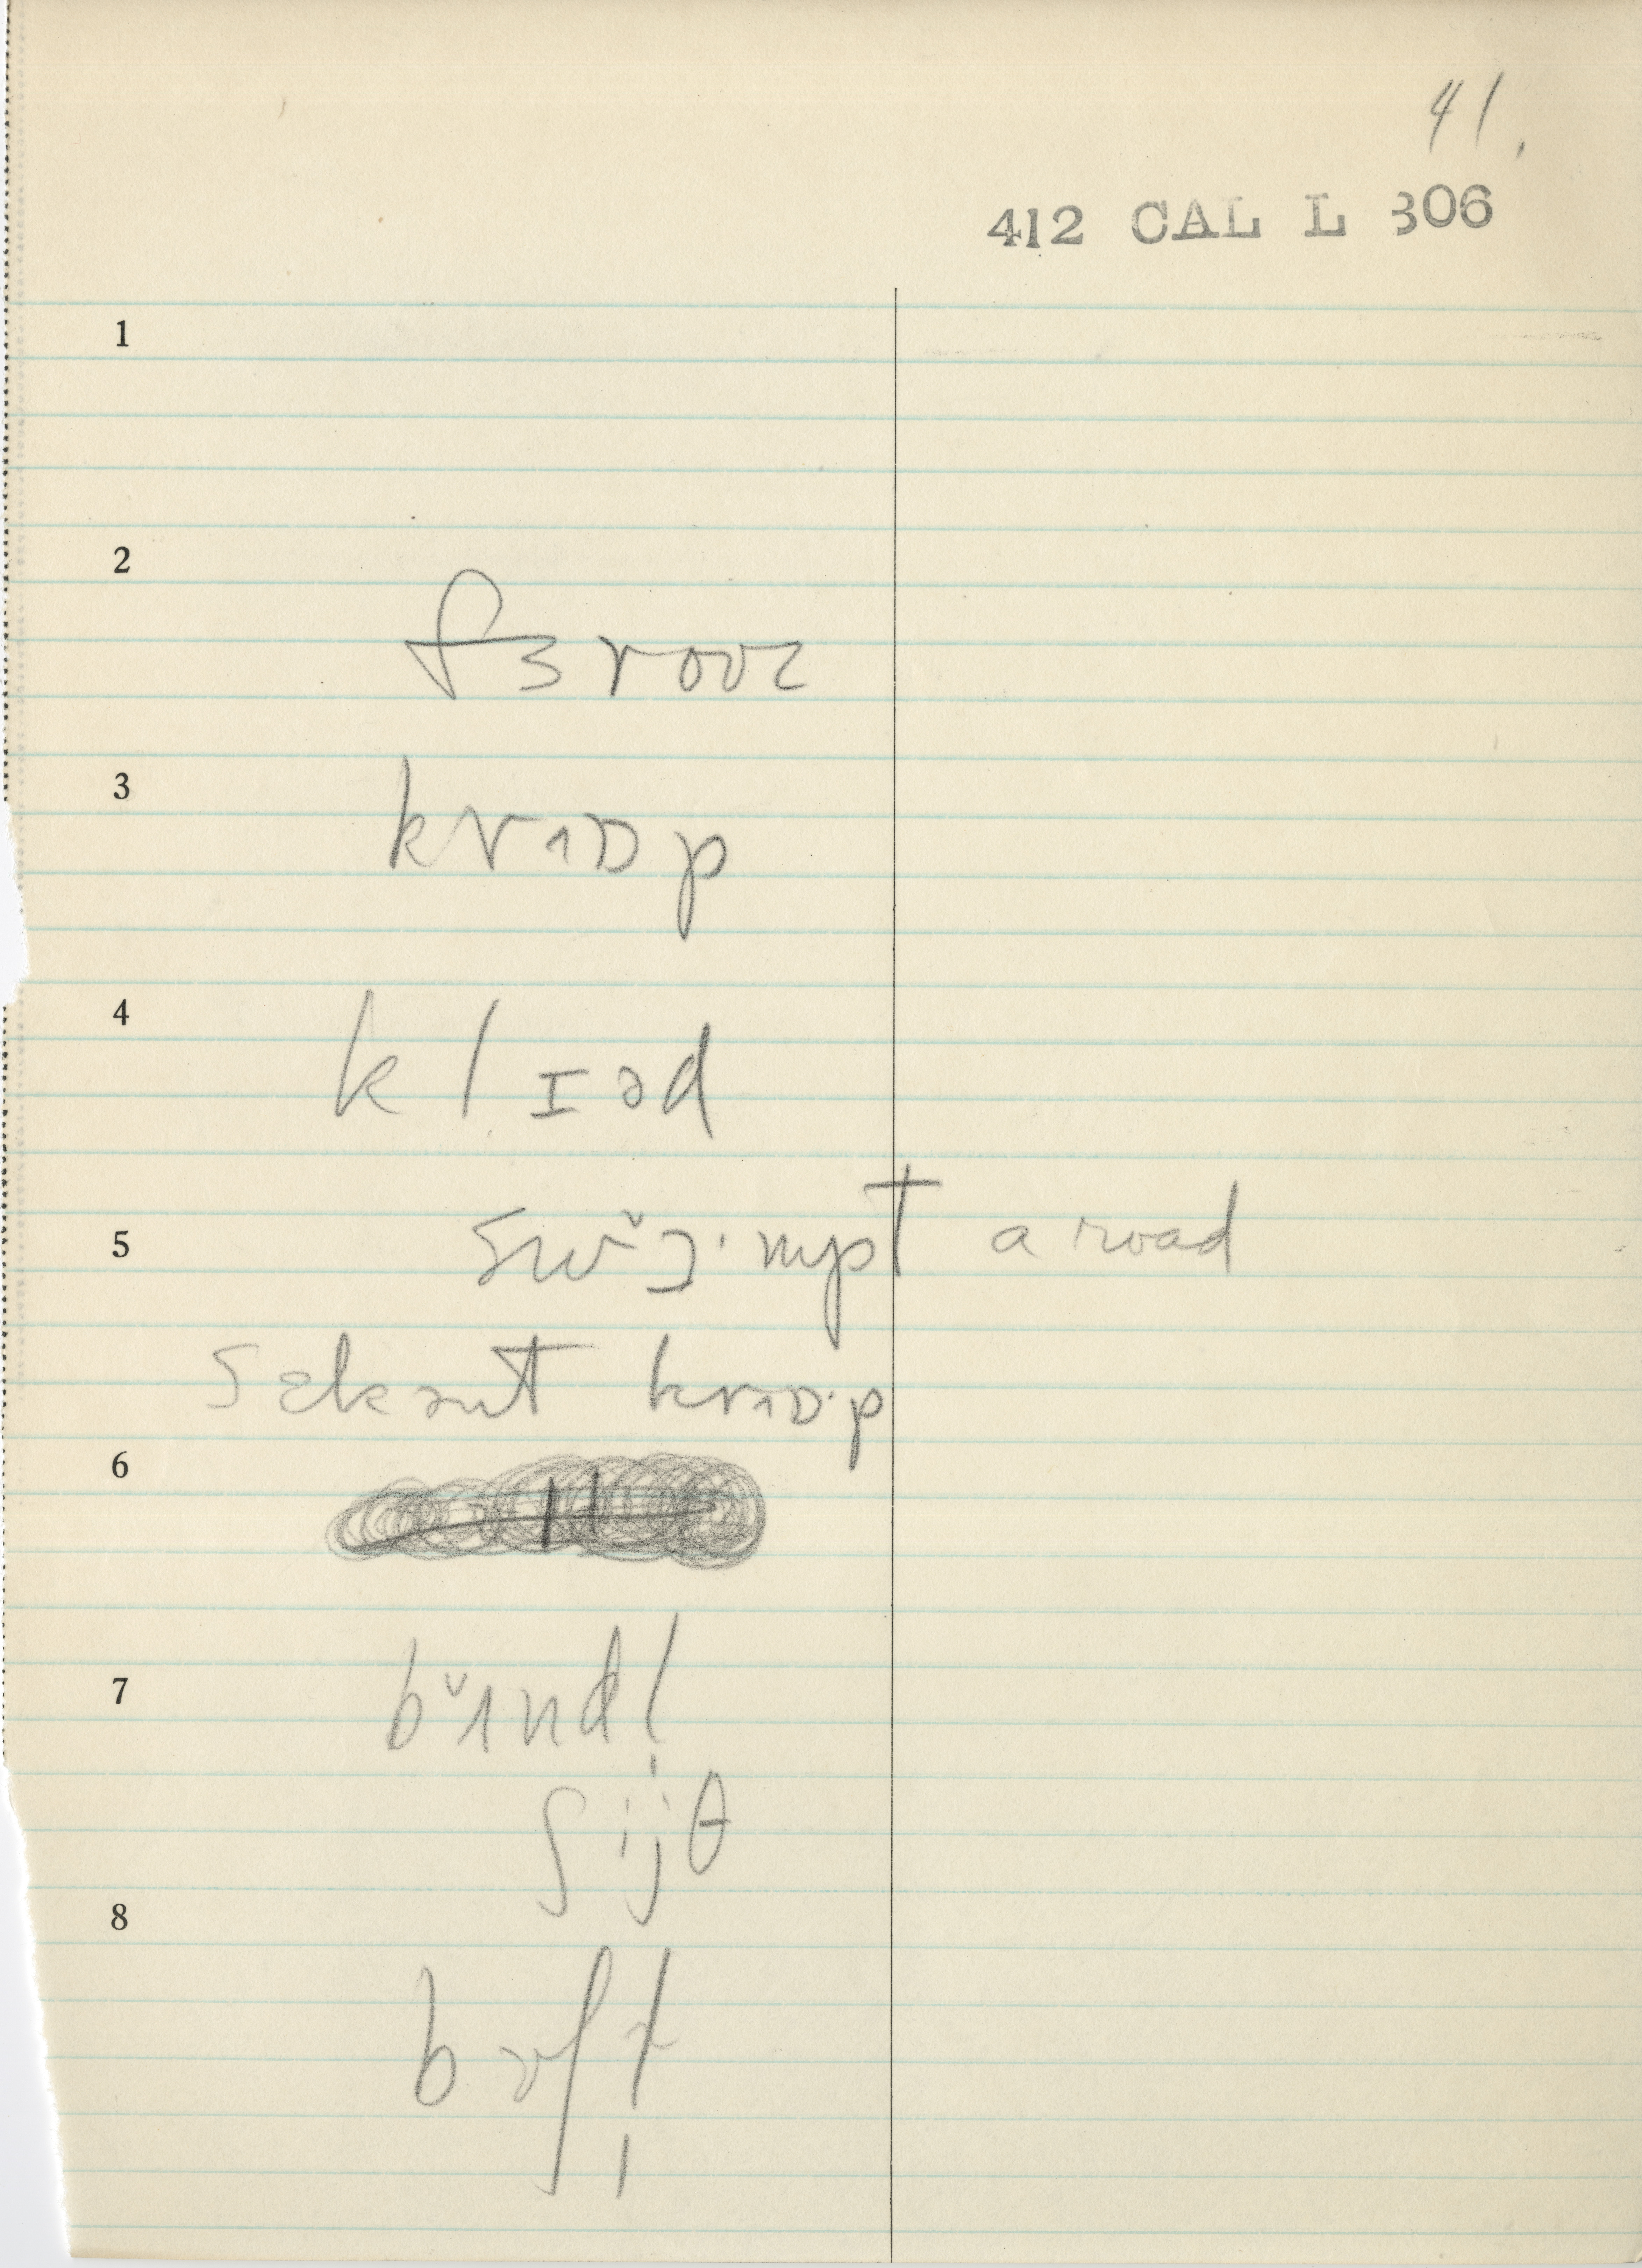 41.
412 CAL L 306
1
2
fɜroʊz
3
krɒp
4
klɪəd
5
swɔ̌·mpt a road
sɛkənt krɒ·p
6
7
bʌ̌ndl̩
ʃijθ
8
bʊʃl̩